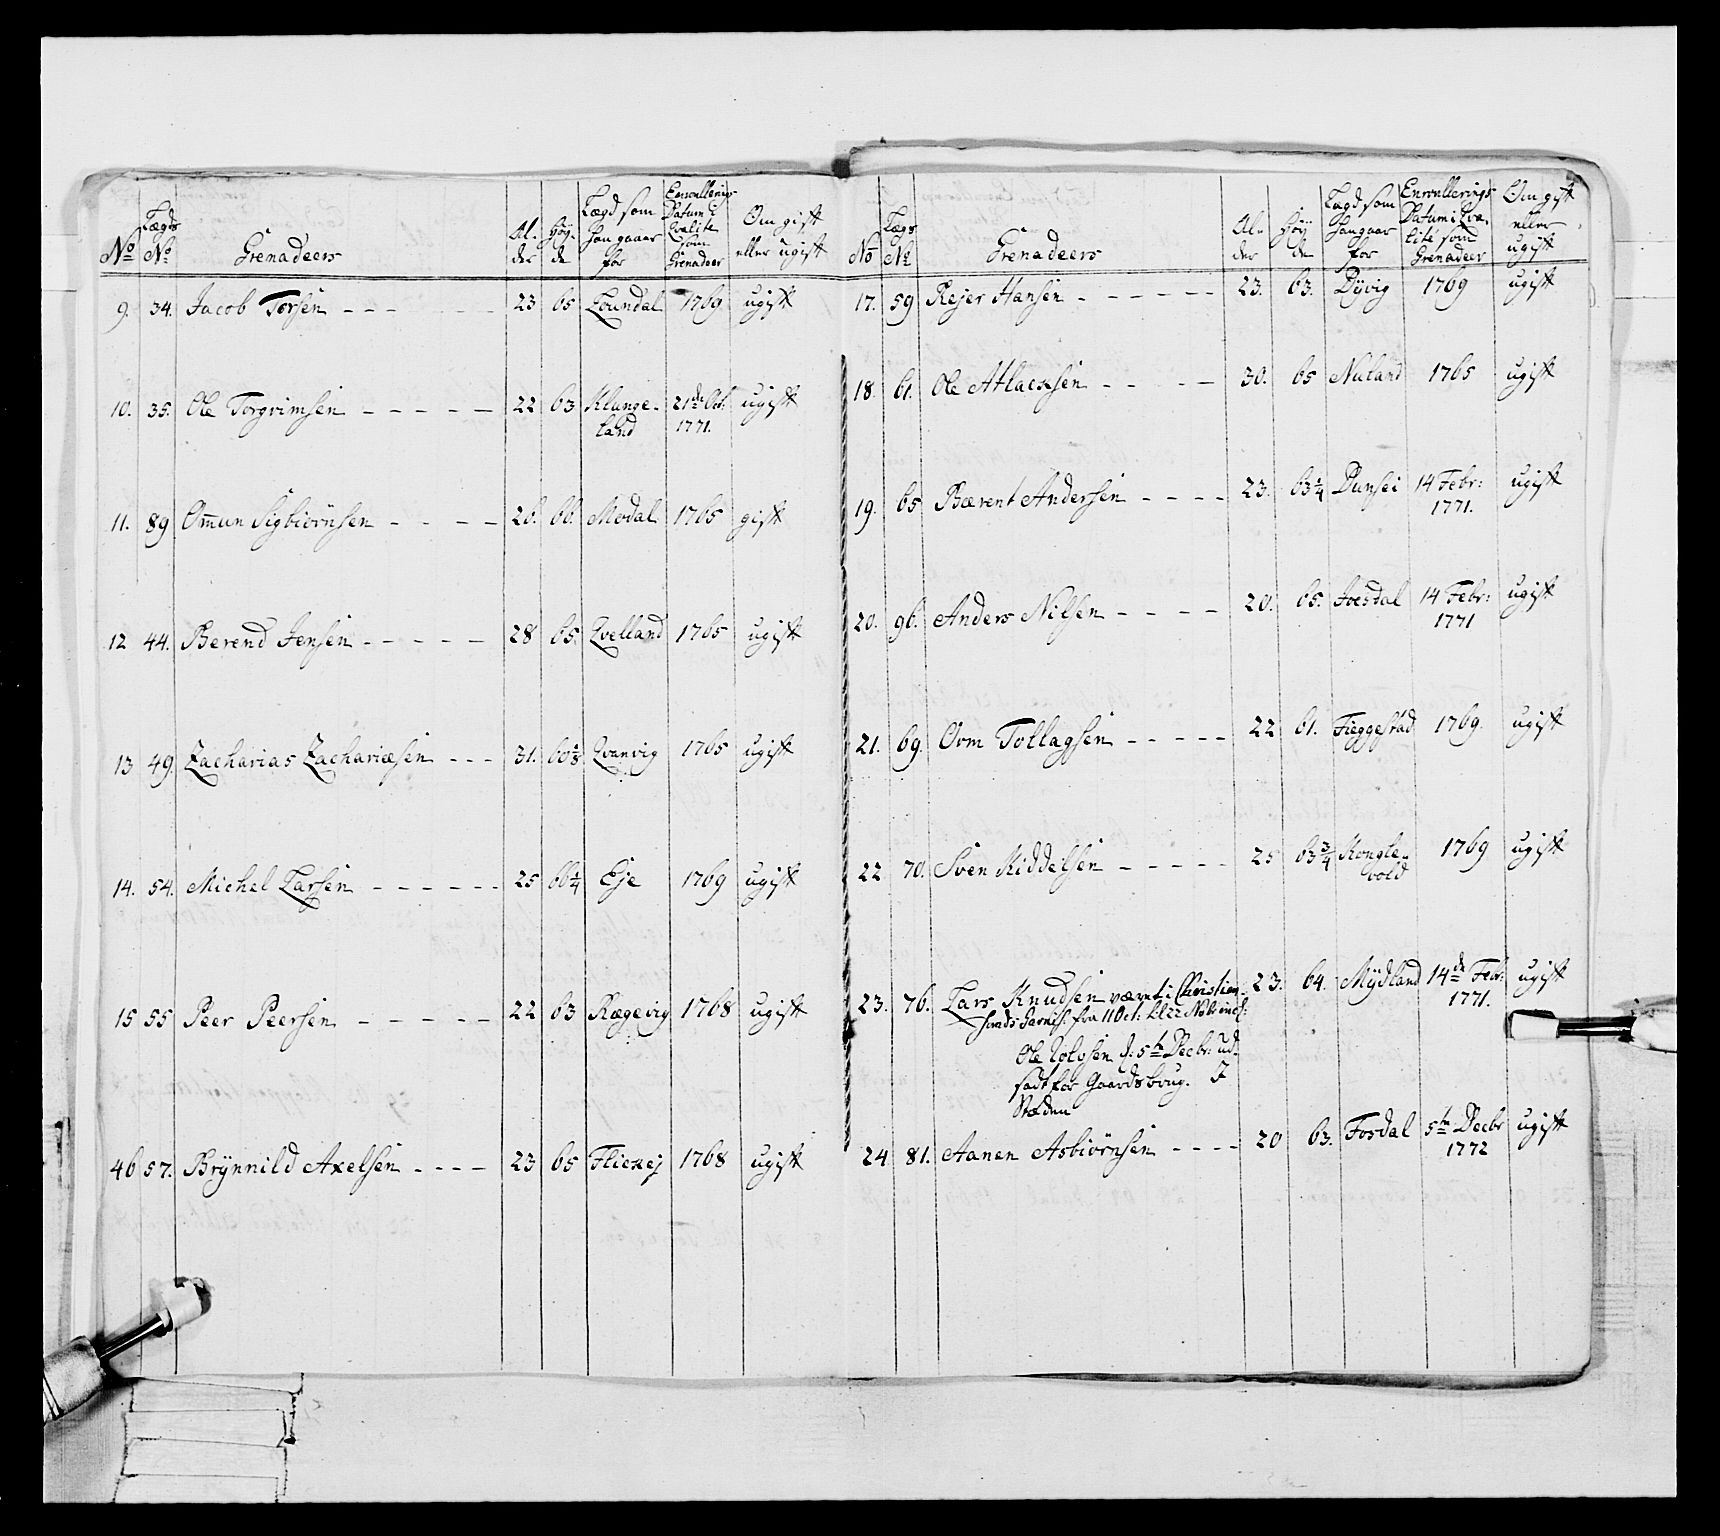 No Lægds No Grenadeers Al- der Høy- de Lægd som han gaaer for Enroullerings Datum i Qvalite som Grenadeer Om gift eller ugift
9. 34. Jacob Torsen - - - 23 65 Loundal 1769 ugift
10. 35. Ole Torgrimsen - - - - - 22 63 Klunge- 21de Oct: ugift
land 1771.
11. 89 Omun Sigbiörnsen - - - - 26. 66. Modal 1765 gift
12 44. Berend Jensen - - - - - 28 65. Qvelland 1765 ugift
13 49. Zacharias Zachariæsen - - - 31. 60 1/8 Qvanvig 1765 ugift
14. 54. Michel Larsen - - - - - - 25 66 1/4 Eje 1769 ugift
15 55 Peer Peersen - - - - - 22 63 Rægevig 1768 ugift
46 57. Brÿnnild Axelsen - - - - 23 65 Fliexej 1768 ugift
No Lægs No Grenadeers Al- der Høy de Lægd som han gaar for Enroullerings Datum i Qva- lité som Grenadeer Om gift eller ugift
17. 59 Rejer Hansen - - - - - 23. 63. Dÿvig 1769 ugift
18. 61. Ole Atlaksen - - - - - 30. 65 Nuland 1765 ugift
19. 65 Bærent Andersen - - - - 23. 63 1/4 Dunsei 14 Febr: ugift
1771.
20. 96. Anders Nilsen - - - - 20. 65. Joesdal 14 Febr: ugift
1771
21. 69. Orm Tollagsen - - - - - 22 61. Fieggestad 1769. ugift
22 70. Sven Kiddelsen - - - - - 25 63 3/4 Kongle- 1769 ugift
vold
23. 76. Lars Knudsen været i Christian- 23. 64. Mÿdland 14de Febr: ugift
sands Garnis: fra 11 Oct: til 22 Nob: incl: 1771.
Ole d: 5te Decbr: ud-
sadt for Gaards brug. I
Stæden
24 81. Aanen Asbiörnsen - - - - 20 63. Fosdal 5te Decbr ugift
1772